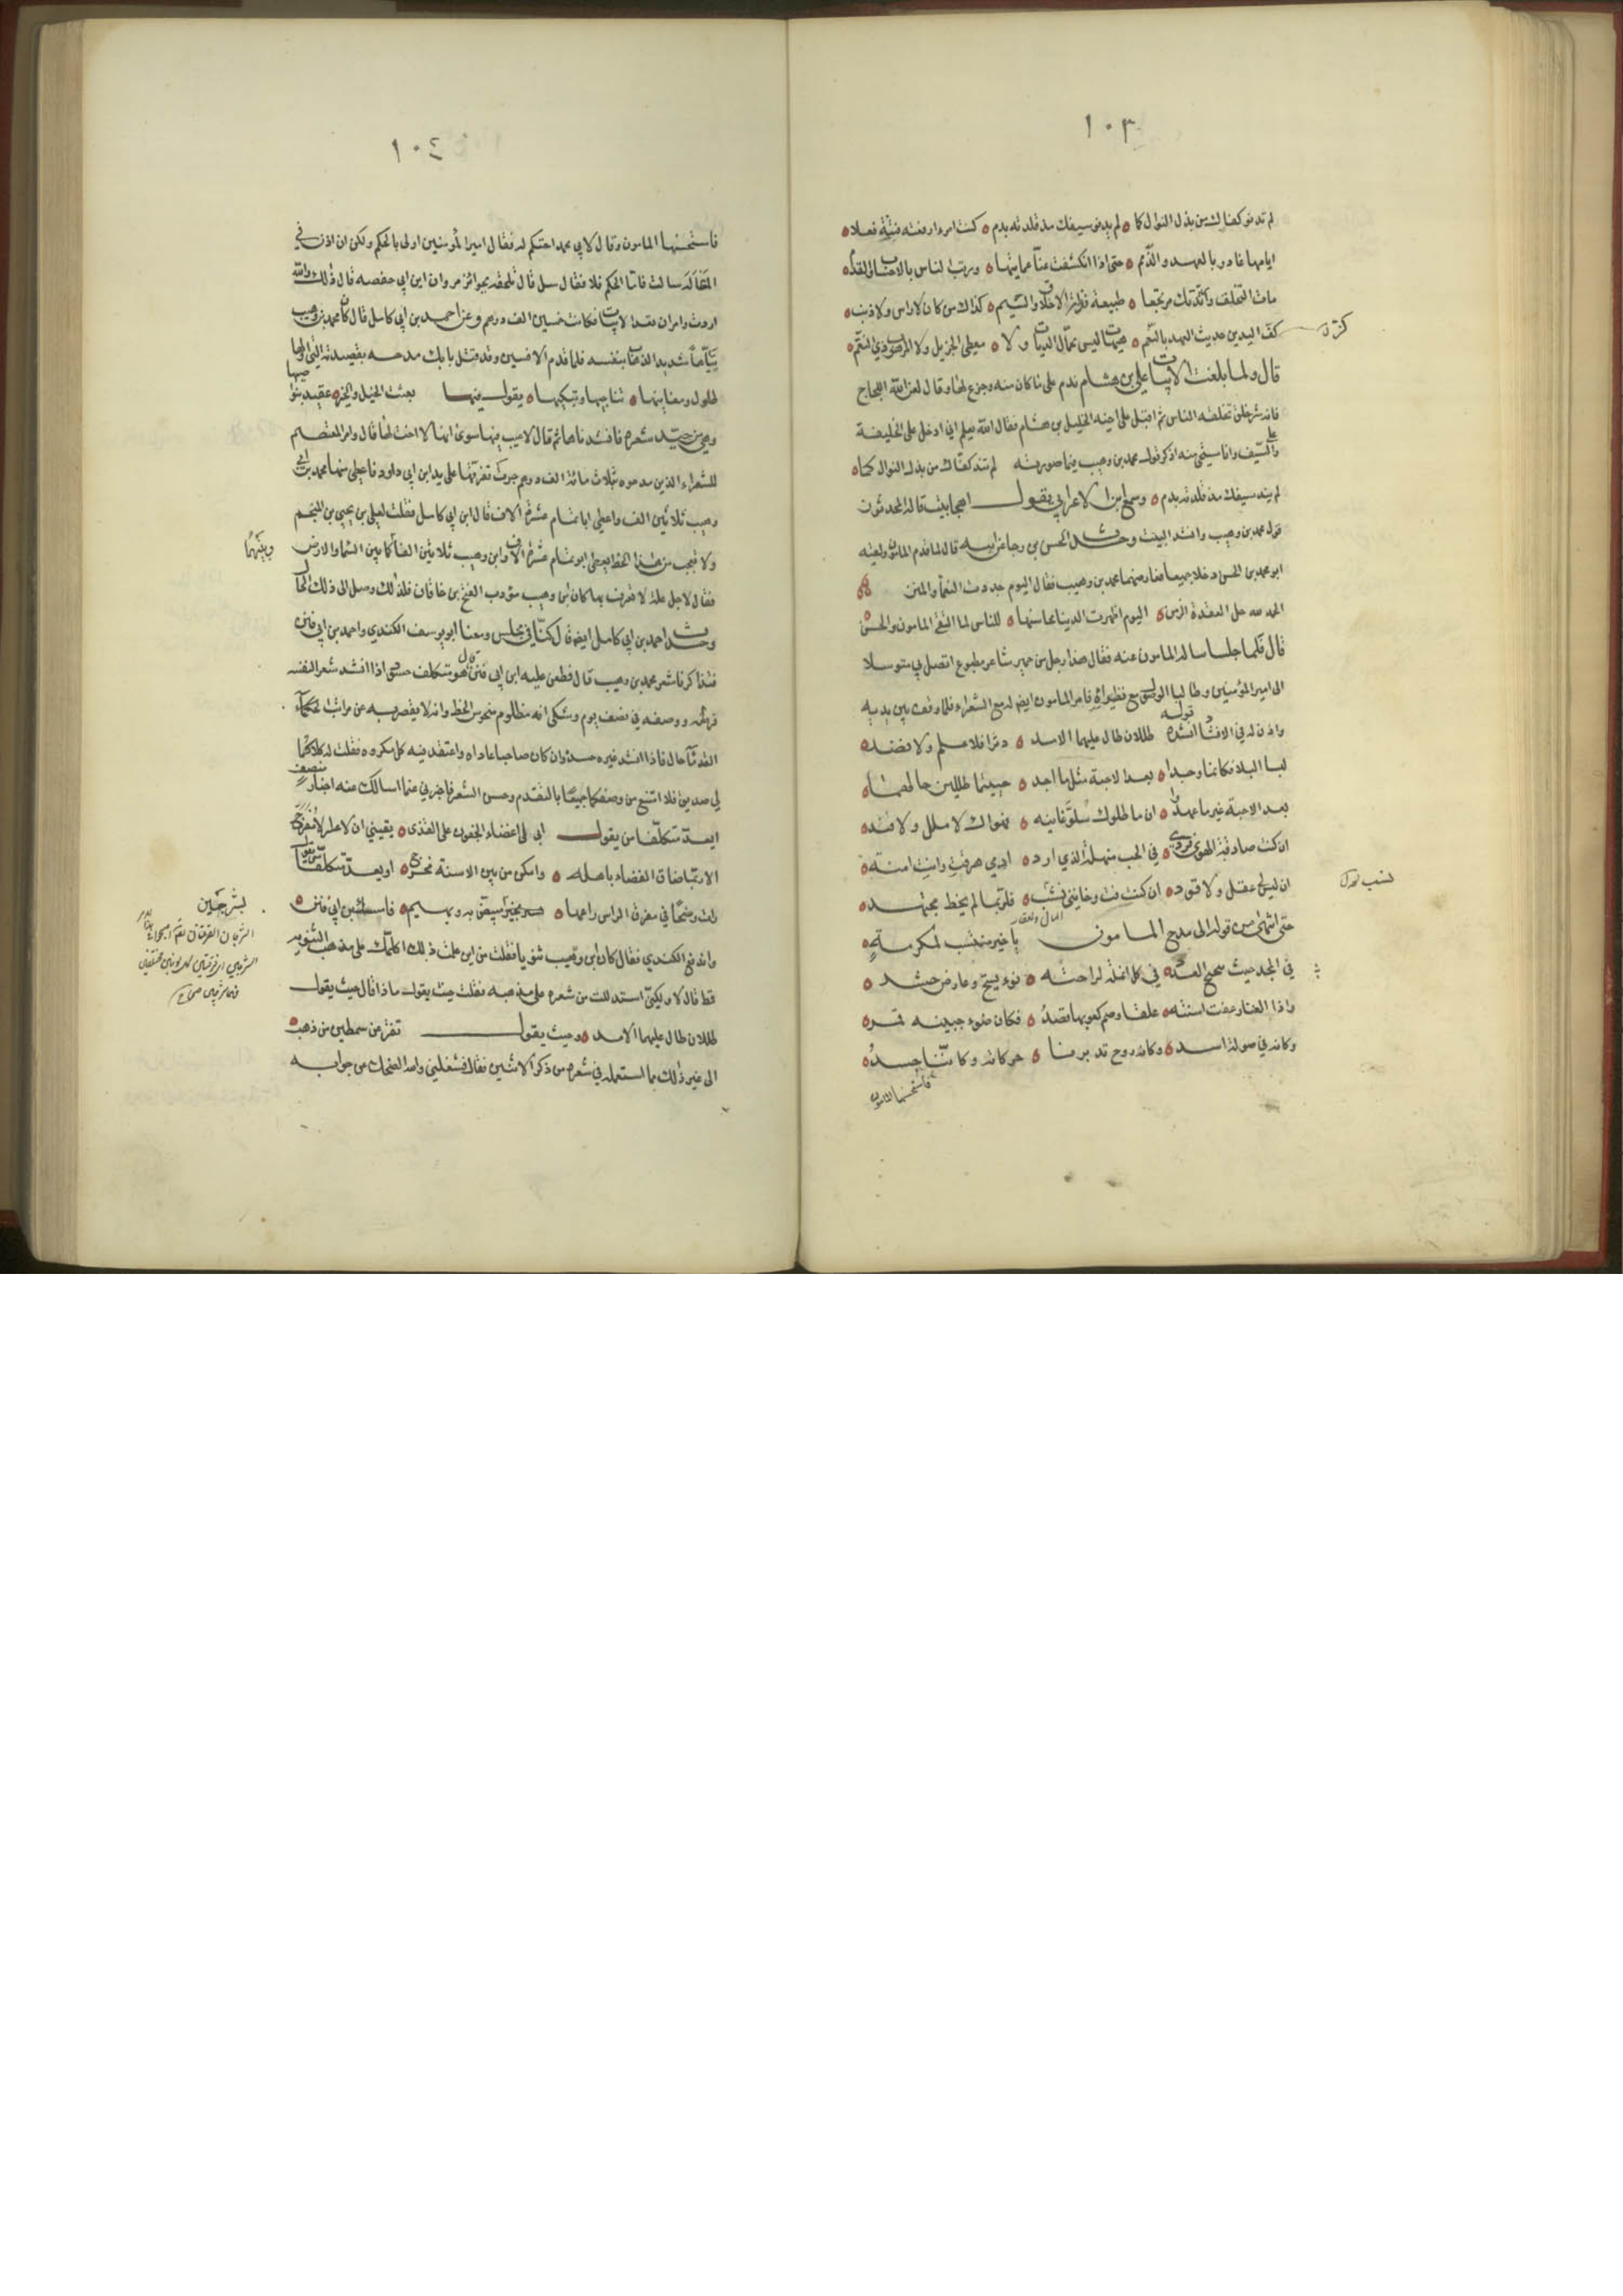 ١٠٣
لم تند كفاك من بذل النوال كما لم يند سيفك مذ قلدته بدم كنت امرءا رفعته فتنة فعلا
ايامها غادرا بالعهد والذمم حتى اذا انكشفت عنا عمايتها ورتب الناس بالاحساب والقدم
مات التخلق وارتدتك مرتجعا طبيعة نذلة الاخلاق والشيم كذاك من كان لا راس ولا ذنب
كز اليدين حديث العهد بالنعم هيهات ليس بحمال الديات ولا معطي الجزيل ولا المرهوب ذي النقم
قال ولما بلغت الابيات علي بن هشام ندم على ما كان منه وجزع لها وقال لعن الله اللجاج
فانه شر خلق تخلقه الناس ثم اقبل على اخيه الخليل بن هشام فقال الله يعلم اني ادخل على الخليفة
وعلي السيف وانا مستحي منه اذكر قول محمد بن وهيب فيما صورته لم تند كفاك من بذل النوال كما
لم يند سيفك مذ قلدته بدم وسمع ابن الاعرابي يقول اهجا بيت قاله المحدثون
قول محمد بن وهيب وانشد البيت وحدث الحسن بن رجا عن ابيه قال لما قدم المامون ولقيه
ابو محمد بن الحسن دخلا جميعا فعارضهما محمد بن وهيب فقال اليوم جددت النعماء والمنن
الحمد لله حل العقدة الزمن اليوم اظهرت الدنيا محاسنها للناس لما التقى المامون والحسن
قال فلما جلسا ساله المامون عنه فقال هذا رجل من حمير شاعر مطبوع اتصل بي متوسلا
الى امير المؤمنين وطالبا الوصول مع نظرائه فامر المامون بايصاله مع الشعراء فلما وقف بين يديه
واذن له في الانشاد انشده قوله طللان طال عليهما الامد دثرا فلا علم ولا نضد
لبسا البلا فكانما وجدا بعد الاحبة مثل ما اجد حييتما طللين حالهما
بعد الاحبة غير ما عهدوا ان ما طلوك سلو غانية نهواك لا ملل ولا فند
ان كنت صادقة الهوى فردي في الحب منهله الذي ارد ادمي هرقت وانت امنة
ان ليس لي عقل ولا قود ان كنت فت وخانني نشب فلربما لم يحظ مجتهد
حتى انتهى من قوله الى مدح المامون يا خير منتسب لمكرمة
في المجد حيث تبحبح العدد في كل انملة لراحته نوء يسح وعارض حشد
واذا القنا رعفت اسنته علقا وصم كعوبها قصد فكان ضوء جبينه قمر
وكانه في صولة اسد وكانه روح تدبرنا حركاته وكاننا جسد
فاستحسنها المامون
١٠٤
فاستحسنها المامون وقال لابي محمد احتكم له فقال امير المؤمنين اولى بالحكم ولكن ان اذن لي
المقالة سالت فاما الحكم فلا فقال سل قال تلحقه بجوائز مروان ابن ابي حفصه قال ذلك والله
اردت وامر ان تعد الابيات فكانت خمسين الف درهم وعن احمد بن ابي كامل قال كان محمد بن وهيب
تياها شديد الذهاب بنفسه فلما قدم الافشين وقد قتل بابك مدحه بقصيدته التي اولها
طلول ومغانيها تناجيها وتبكيها يقول فيها بعثت الخيل والخير عقيد بنواصيها
وهي من جيد شعره فانشدناها ثم قال لاعيب فيها سوى انها لا اخت لها قال وامر المعتصم
للشعراء الذين مدحوه بثلاث مائة الف درهم جرت تفرقتها على يد ابن ابي داود فاعطى منها محمد بن
وهيب ثلاثين الف واعطى ابا تمام عشرة آلاف قال ابن ابي كامل فقلت لعلي بن يحيى بن المنجم
ولا تعجب من هذا الحظ يعطى ابو تمام عشرة آلاف وابن وهيب ثلاثين الفا كما بين السما والارض
فقال لاجل علة لا تعرفها كان بن وهيب مؤدب الفتح بن خاقان فلذلك وصل الى ذلك الحال
وحدث احمد بن ابي كامل ايضا قال كنا في مجلس ومعنا ابو يوسف الكندي واحمد بن ابي فنن
فتذاكرنا شعر محمد بن وهيب قال فطعن عليه ابن ابي فنن وقال هو متكلف حسود اذا انشد شعرا لنفسه
قرظه ووصفه في نصف يوم وشكى انه مظلوم منحوس الحظ وانه لا يقصر به عن مراتب القدما
حال فاذا انشد غيره حسده وان كان صاحبا عاداه واعتقد فيه كل مكروه فقلت له كلاكما
لي صديق فلا امتنع من وصفكما جميعا بالتقدم وحسن الشعر فاخبرني عما اسالك عنه اخبار منصف
ايعد متكلفا من يقول ابى لي اغضاء الجفون على القذى يقيني ان لا عسر الا مفرج
الا ربما ضاق الفضاء باهله وامكن من بين الاسنة مخرج اويعد متكلفا من يقول
رات وضحا في مفرق الراس راعها شريحين مبيض به وبهيم فامسك بن ابي فنن
واندفع الكندي فقال كان بن وهيب ثنويا فقلت من اين علمت ذلك اكلمك على مذهب الثنوية
قط قال لا ولكني استدللت من شعره على مذهبه فقلت حيث يقول ماذا قال حيث يقول
طللان طال عليهما الامد وحيث يقول تفتر عن سمطين من ذهب
الى غير ذلك مما استعمله في شعره من ذكر الاثنين فقال فشغلني والله الضحك عن جوابه